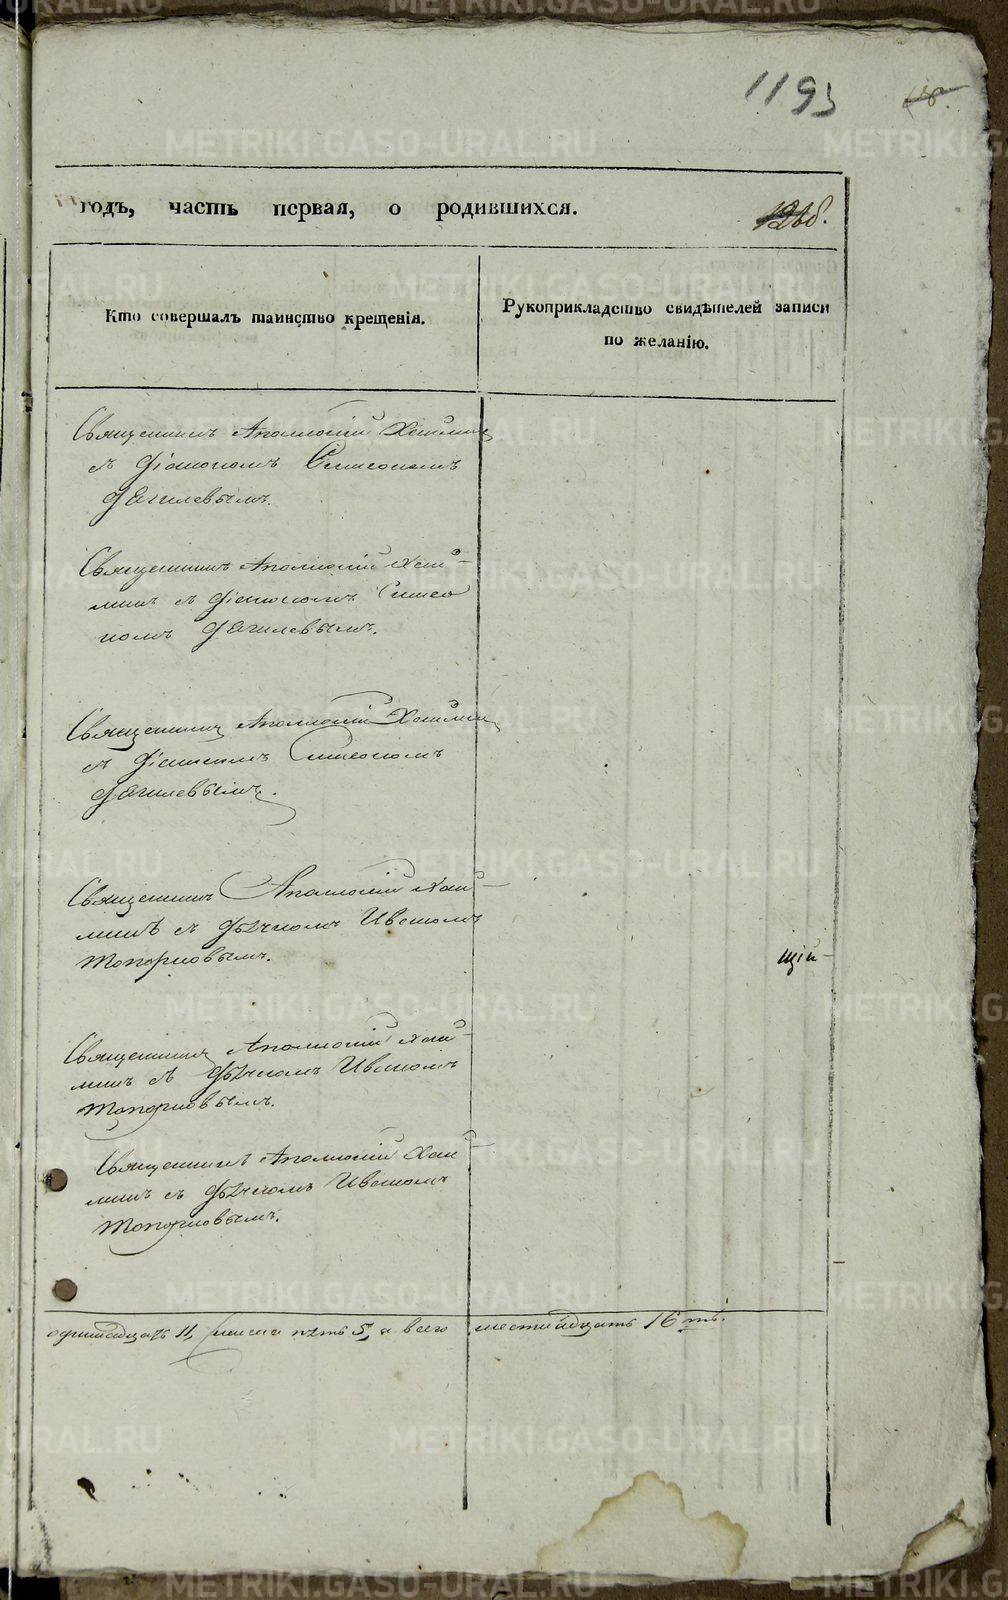 1193
годъ, часть первая, о родившихся.
Кто совершалъ таинство крещенія.
Рукоприкладство свидѣтелей записи
по желанію.
Священникъ Аполлоній
съ Діакономъ Симеономъ
Священникъ Аполлоній
съ Діакономъ Симео
номъ
Священникъ Аполлоній
съ Діакономъ Симеономъ
Священникъ Аполлоній
съ Дьячкомъ Иваномъ
Топорковымъ.
щій
Священникъ Аполлоній
съ Дьячкомъ Иваномъ
Топорковымъ.
Священникъ Аполлоній
съ Дьячкомъ Иваномъ
Топорковымъ.
одинадцать 11, пять 5, а всего шестнадцать 16ть.
METRIKI.GASO-URAL.RU